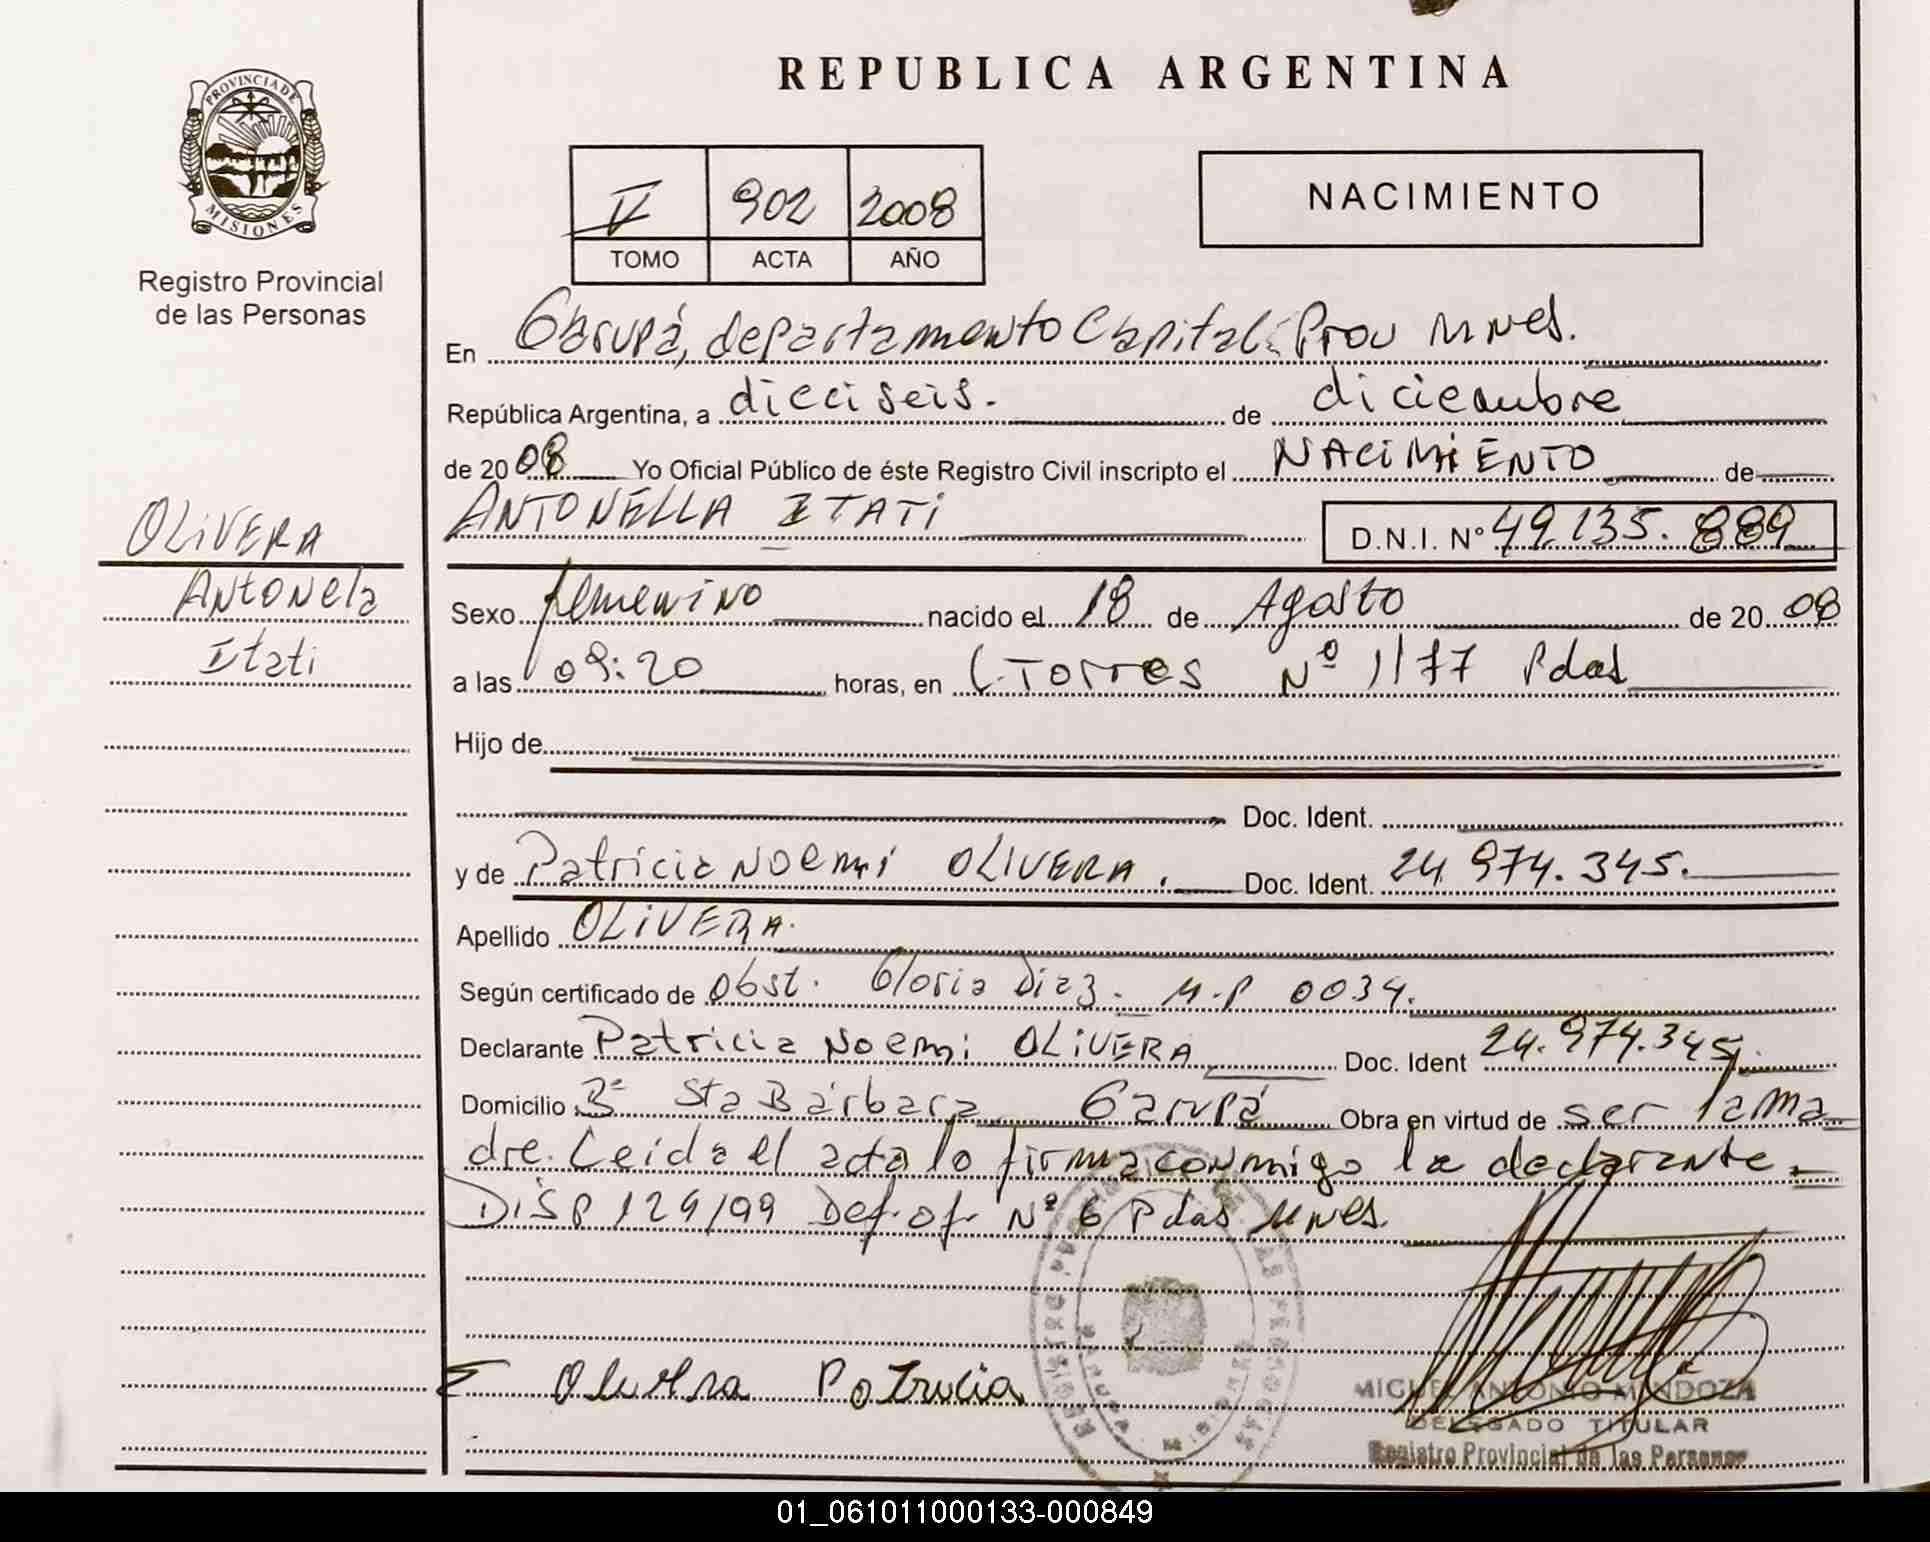 PROVINCIA DE
MISIONES
Registro Provincial
de las Personas
OLIVERA
Antonela
Itati
REPUBLICA ARGENTINA
902 2008
TOMO ACTA AÑO
NACIMIENTO
En Garupá, departamento Capital Prov Mnes.
República Argentina, a dieciseis. de diciembre
de 2008 Yo Oficial Público de éste Registro Civil inscripto el NACIMIENTO de
ANTONELLA ITATI D.N.I. Nº 49.135.889
Sexo femenino nacido el 18 de Agosto de 2008
a las 09:20 horas, en C. Torres Nº 1177 Pdas
Hijo de
Doc. Ident.
y de Patricia Noemi OLIVERA. Doc. Ident. 24 974.345.
Apellido OLIVERA.
Según certificado de Obst. Gloria Diaz. M.P 0034.
Declarante Patricia Noemi OLIVERA Doc. Ident 24.974.345
Domicilio Bº Sta Bárbara Garupá Obra en virtud de ser la ma
dre. Leida el acta lo firma conmigo la declarante.
DISP 129/99 Def. of. Nº 6 Pdas Mnes.
Olivera Patricia
MIGUEL ANTONIO MENDOZA
DELEGADO TITULAR
Registro Provincial de las Personas
01_061011000133-000849